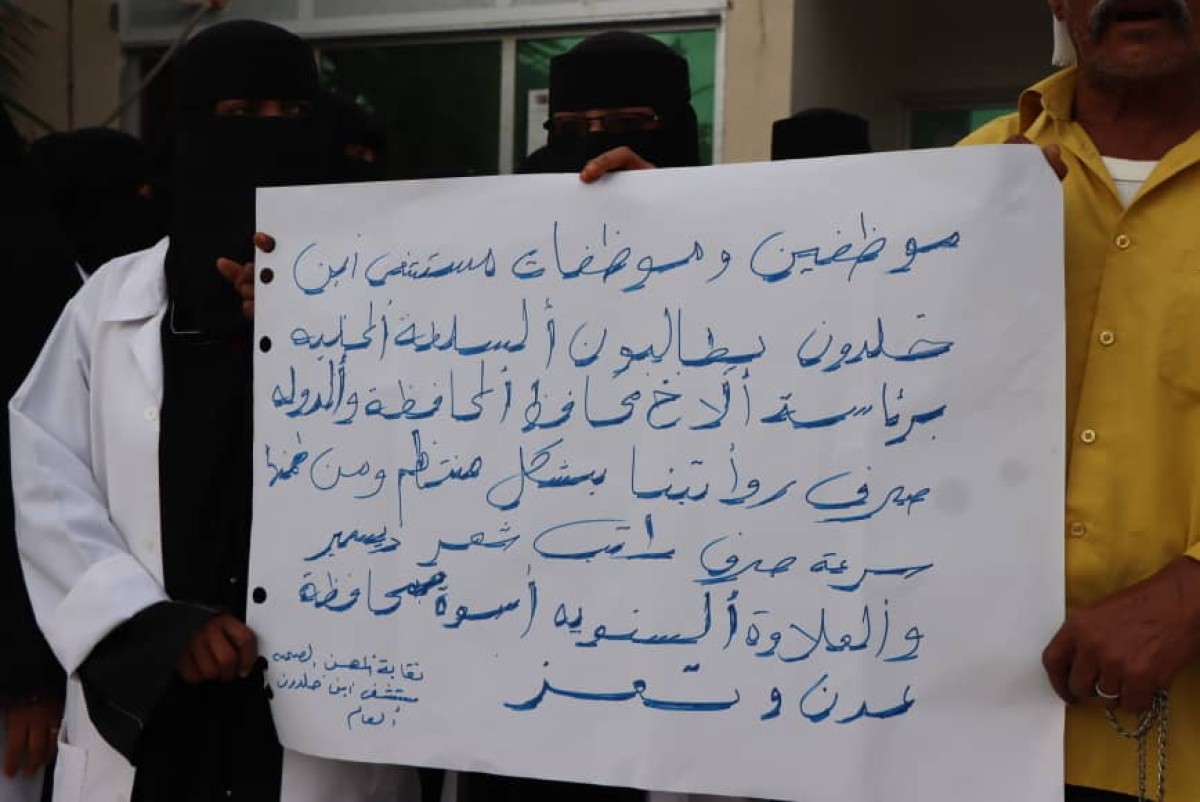 موظفين وموظفات مستشفى ابن
خلدون يطالبون ألسلطة ألمحليه
برئاسة ألاخ محافظ ألمحافظة وألدوله
صرف روأتبنا بشكل منتظم ومن ضمنها
سرعة صرف راتب شهر ديسمبر
وألعلاوة ألسنويه أسوة بمحافظة
عدن وتعز
نقابة المهن الصحيه
مستشفى ابن خلدون
العام